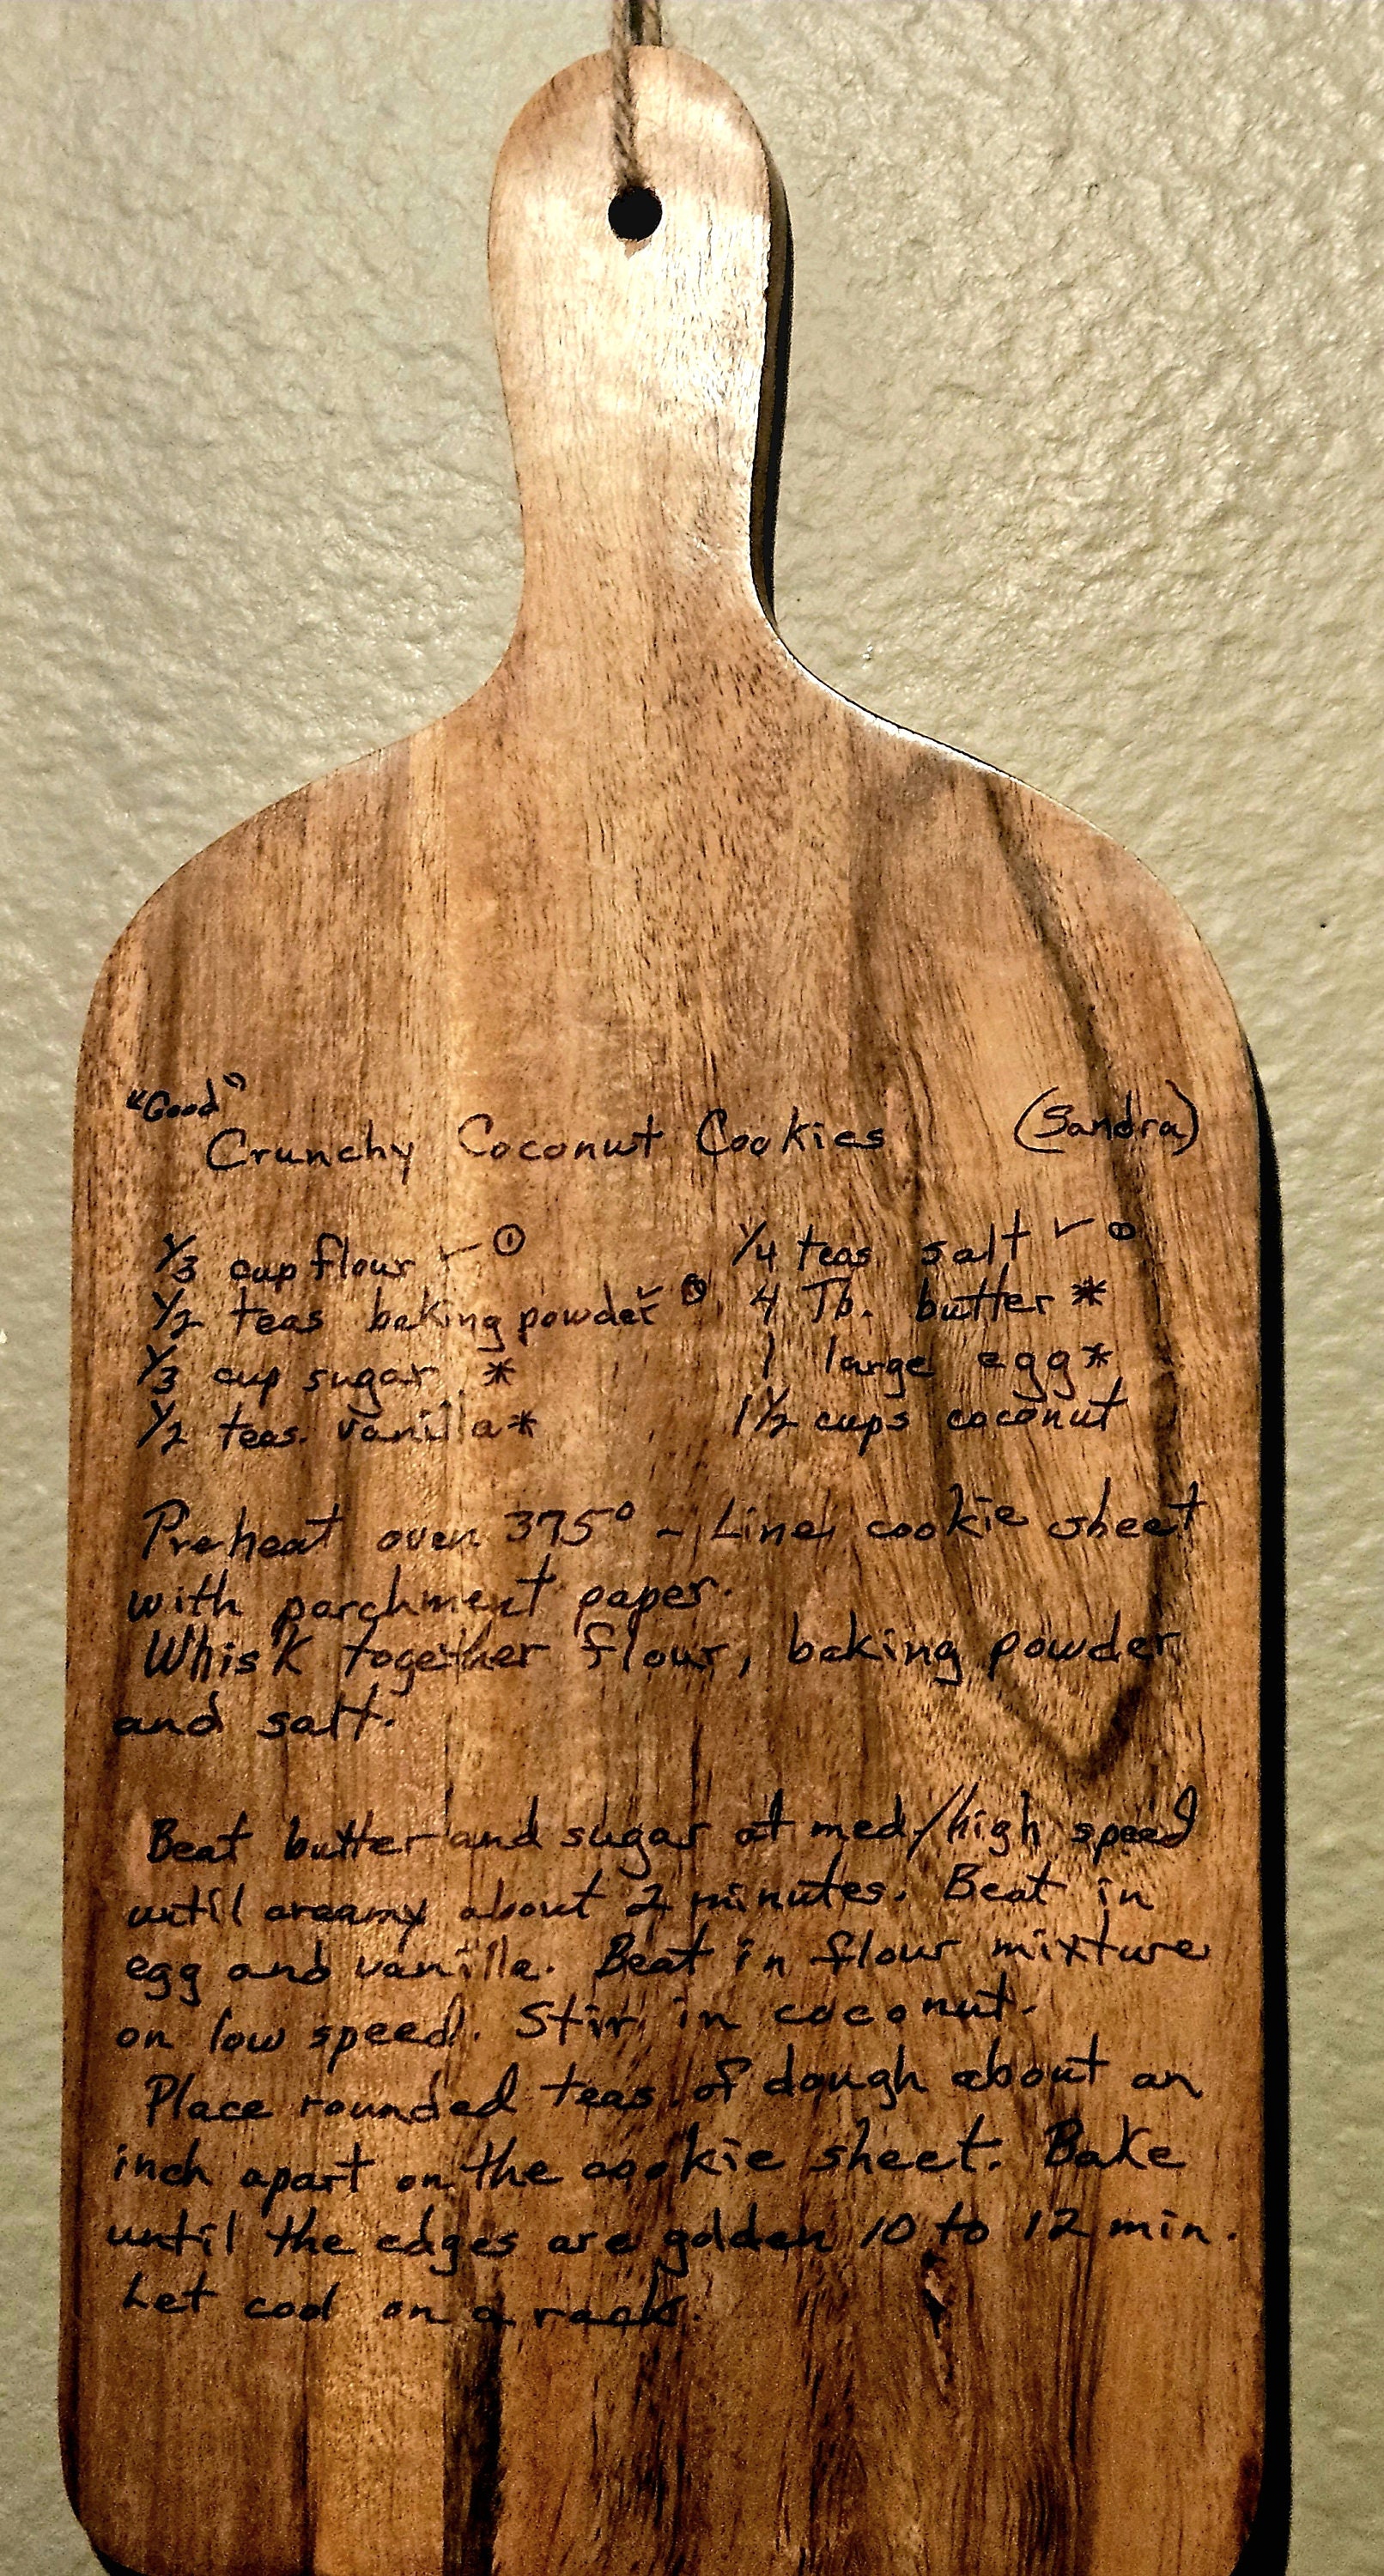 "Good"
Crunchy Coconut Cookies (Sandra)
1/3 cup flour ✓ ① 1/4 teas salt ✓ ①
1/2 teas baking powder ✓ ① 4 Tb. butter *
1/3 cup sugar * 1 large egg *
1/2 teas. vanilla * 1 1/2 cups coconut
Preheat oven 375° - Line cookie sheet
with parchment paper.
Whisk together flour, baking powder
and salt.
Beat butter and sugar at med/high speed
until creamy about 2 minutes. Beat in
egg and vanilla. Beat in flour mixture
on low speed. Stir in coconut.
Place rounded teas of dough about an
inch apart on the cookie sheet. Bake
until the edges are golden 10 to 12 min.
Let cool on a rack.